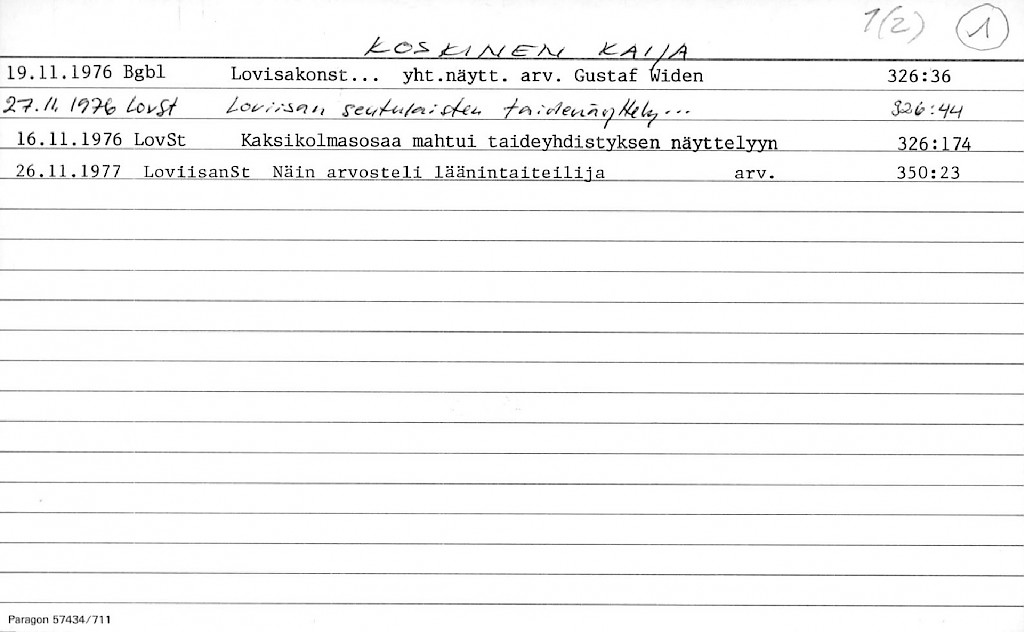 1(2) 1
KOSKINEN KAIJA
19.11.1976 Bgbl Lovisakonst... yht.näytt. arv. Gustaf Widen 326:36
27.11.1976 LovSt Loviisan seutulaisten taidenäyttely... 326:44
16.11.1976 LovSt Kaksikolmasosaa mahtui taideyhdistyksen näyttelyyn 326:174
26.11.1977 LoviisanSt Näin arvosteli läänintaiteilija arv. 350:23
Paragon 57434/711